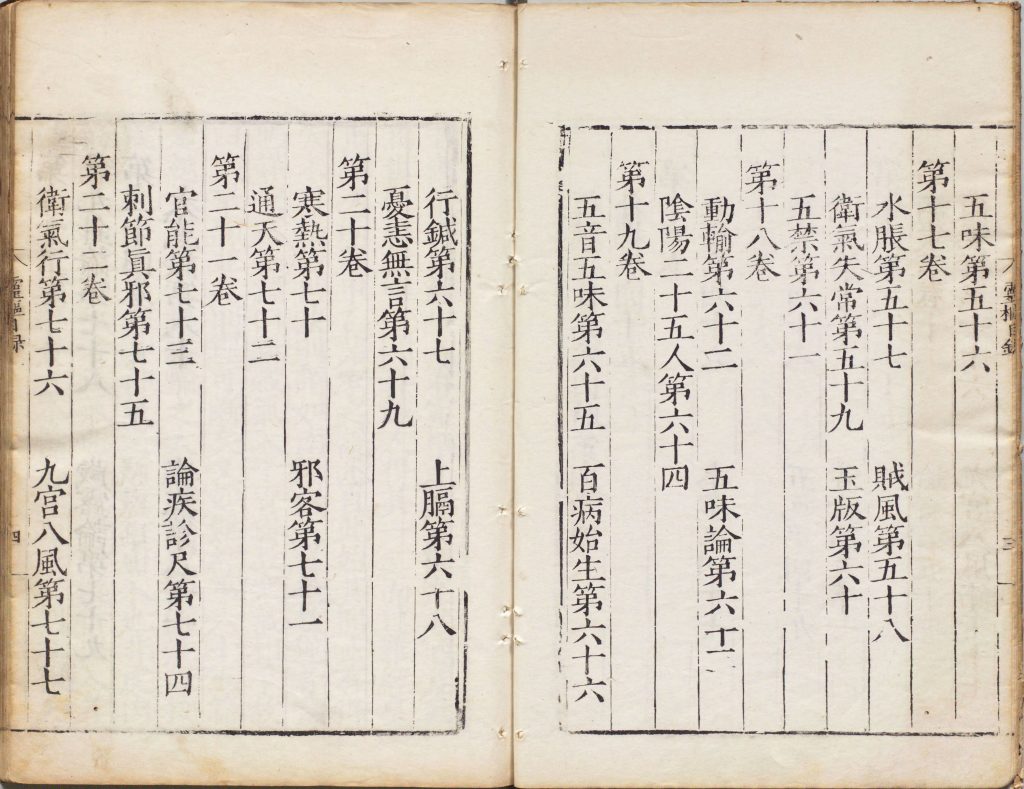 五味第五十六
第十七卷
水脹第五十七 賊風第五十八
衛氣失常第五十九 玉版第六十
五禁第六十一
第十八卷
動輸第六十二 五味論第六十三
陰陽二十五人第六十四
第十九卷
五音五味第六十五 百病始生第六十六
行鍼第六十七 上膈第六十八
憂恚無言第六十九
第二十卷
寒熱第七十 邪客第七十一
通天第七十二
第二十一卷
官能第七十三 論疾診尺第七十四
刺節眞邪第七十五
第二十二卷
衛氣行第七十六 九宮八風第七十七
靈樞目録
四